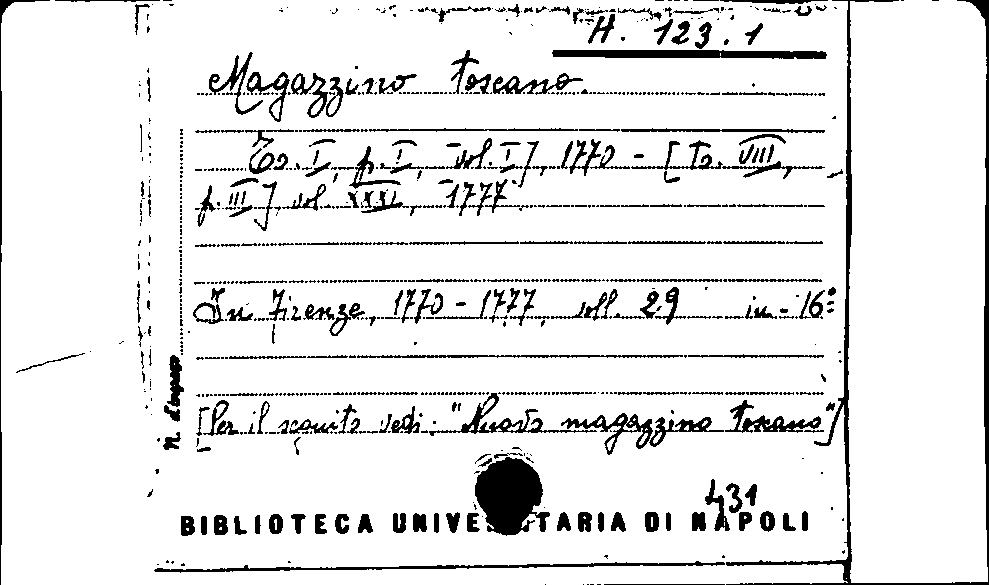 H. 123.1
Magazzino toscano.
To. I, p. I, vol. I], 1770 - [To. VIII,
p. III], vol. XXXI, 1777
In Firenze, 1770 - 1777, voll. 29 in-16°
[Per il seguito vedi: "Nuovo magazzino toscano"]
N. d'ingresso
431
BIBLIOTECA UNIVERSITARIA DI NAPOLI